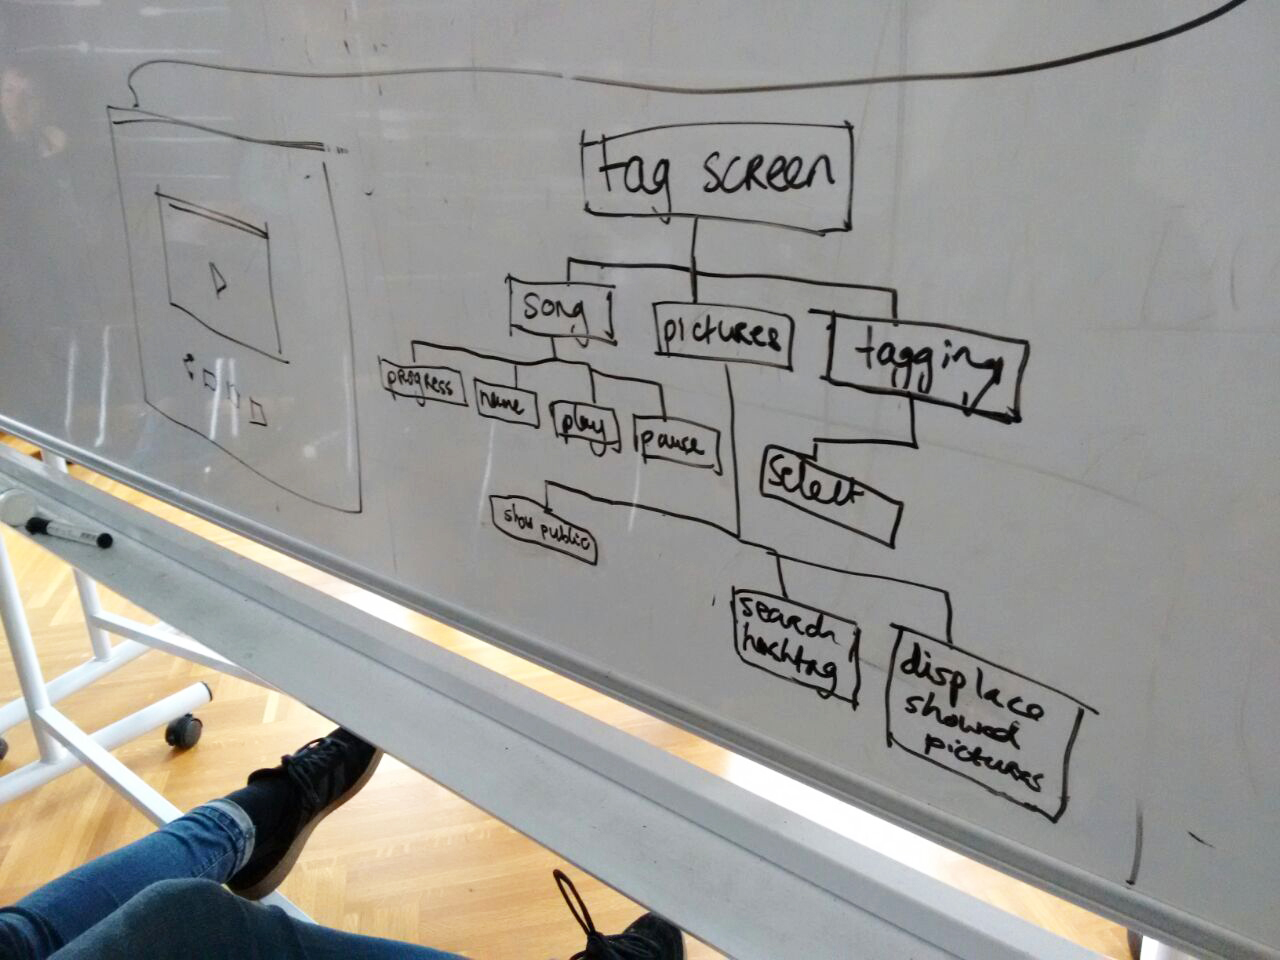 tag screen
song
pictures
tagging
progress
name
play
pause
select
show public
search
hashtag
displace
showed
pictures